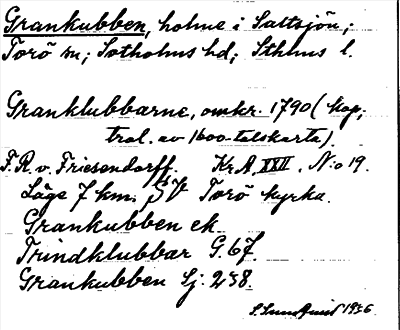 Grankubben, holme i Saltsjön;
Torö sn; Sotholms hd; Sthlms l.
Granklubbarne, omkr. 1790 (kop;
tral. av 1600-talskarta).
F. R. v. Friesendorff. Kr A XXII. N:o 19.
Läge 7 km. SV Torö kyrka.
Grankubben ek.
Trindklubbar G. 67.
Grankubben Sj: 238.
1936